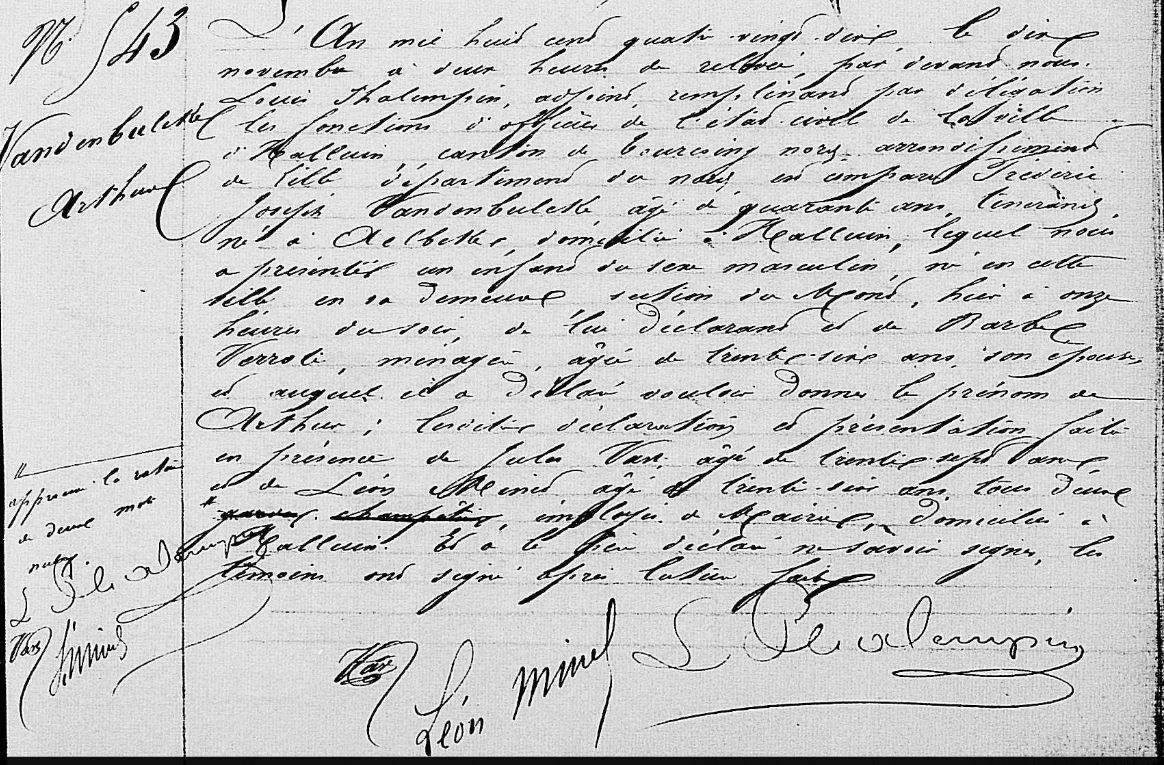 N° 543
Vandenbulcke
Arthur
L'An mil huit cent quatre-vingt-dix, le dix
novembre à deux heures de relevée, par devant nous
Louis Thalempin, adjoint, remplissant par délégation
les fonctions d'officier de l'état-civil de la ville
d'Halluin, canton de Tourcoing nord, arrondissement
de Lille département du nord, est comparu Frédéric
Joseph Vandenbulcke, âgé de quarante ans, tisserand,
né à Aelbeke, domicilié à Halluin, lequel nous
a présenté un enfant du sexe masculin, né en cette
ville en sa demeure section du Mont, hier à onze
heures du soir, de lui déclarant et de Barbe
, ménagère, âgée de trente-six ans, son épouse,
et auquel il a déclaré vouloir donner le prénom de
Arthur ; lesdites déclaration et présentation faites
en présence de Jules Vas, âgé de trente-sept ans
et de Léon Minel âgé de trente-six ans, tous deux
" gardes champêtres, employés de Mairie, domiciliés à
Halluin. Et a le père déclaré ne savoir signer, les
témoins ont signé après lecture faite
"
approuvé la rature
de deux mots
nuls.
L Thalempin
Vas
L. Minel
Vas
Léon Minel
L Thalempin